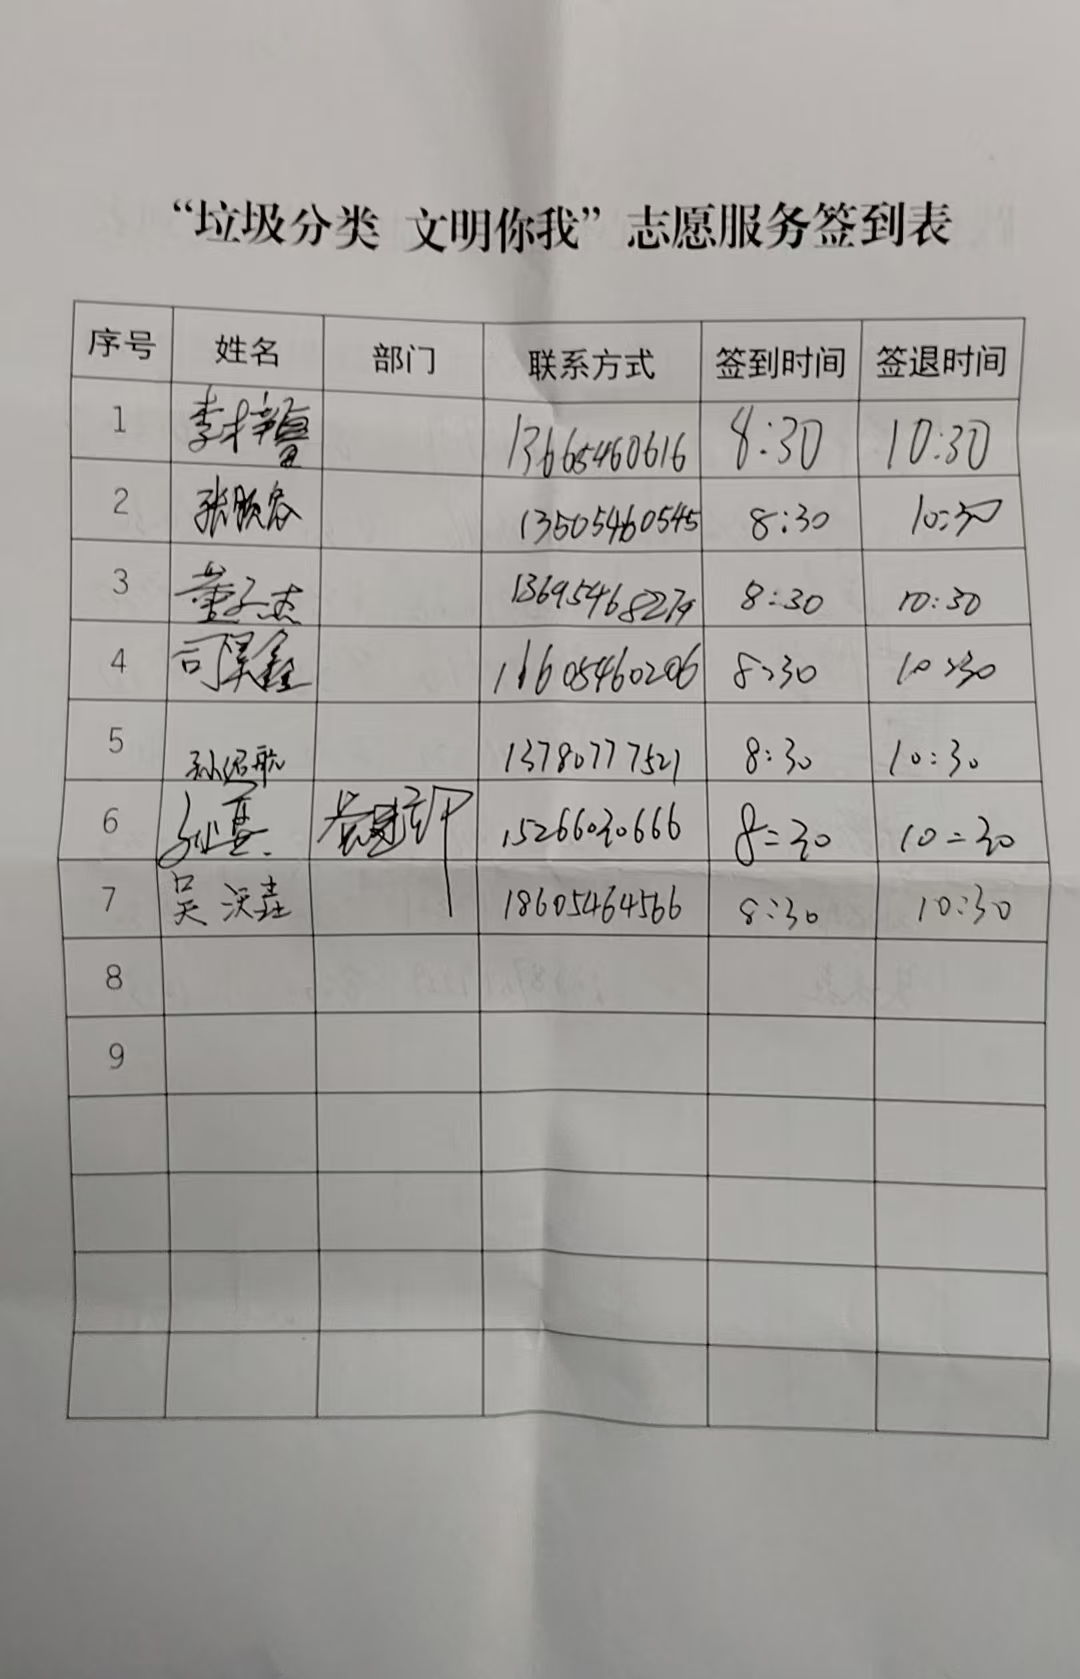 “垃圾分类 文明你我”志愿服务签到表
序号 姓名 部门 联系方式 签到时间 签退时间
1 李梓 13665460616 8:30 10:30
2 张顺容 13505460545 8:30 10:30
3 董子杰 13695468279 8:30 10:30
4 司昊鑫 05460206 8:30 10:30
5 孙绍航 13780777521 8:30 10:30
6 15266030666 8:30 10:30
7 吴沃垚 18605464566 8:30 10:30
8
9